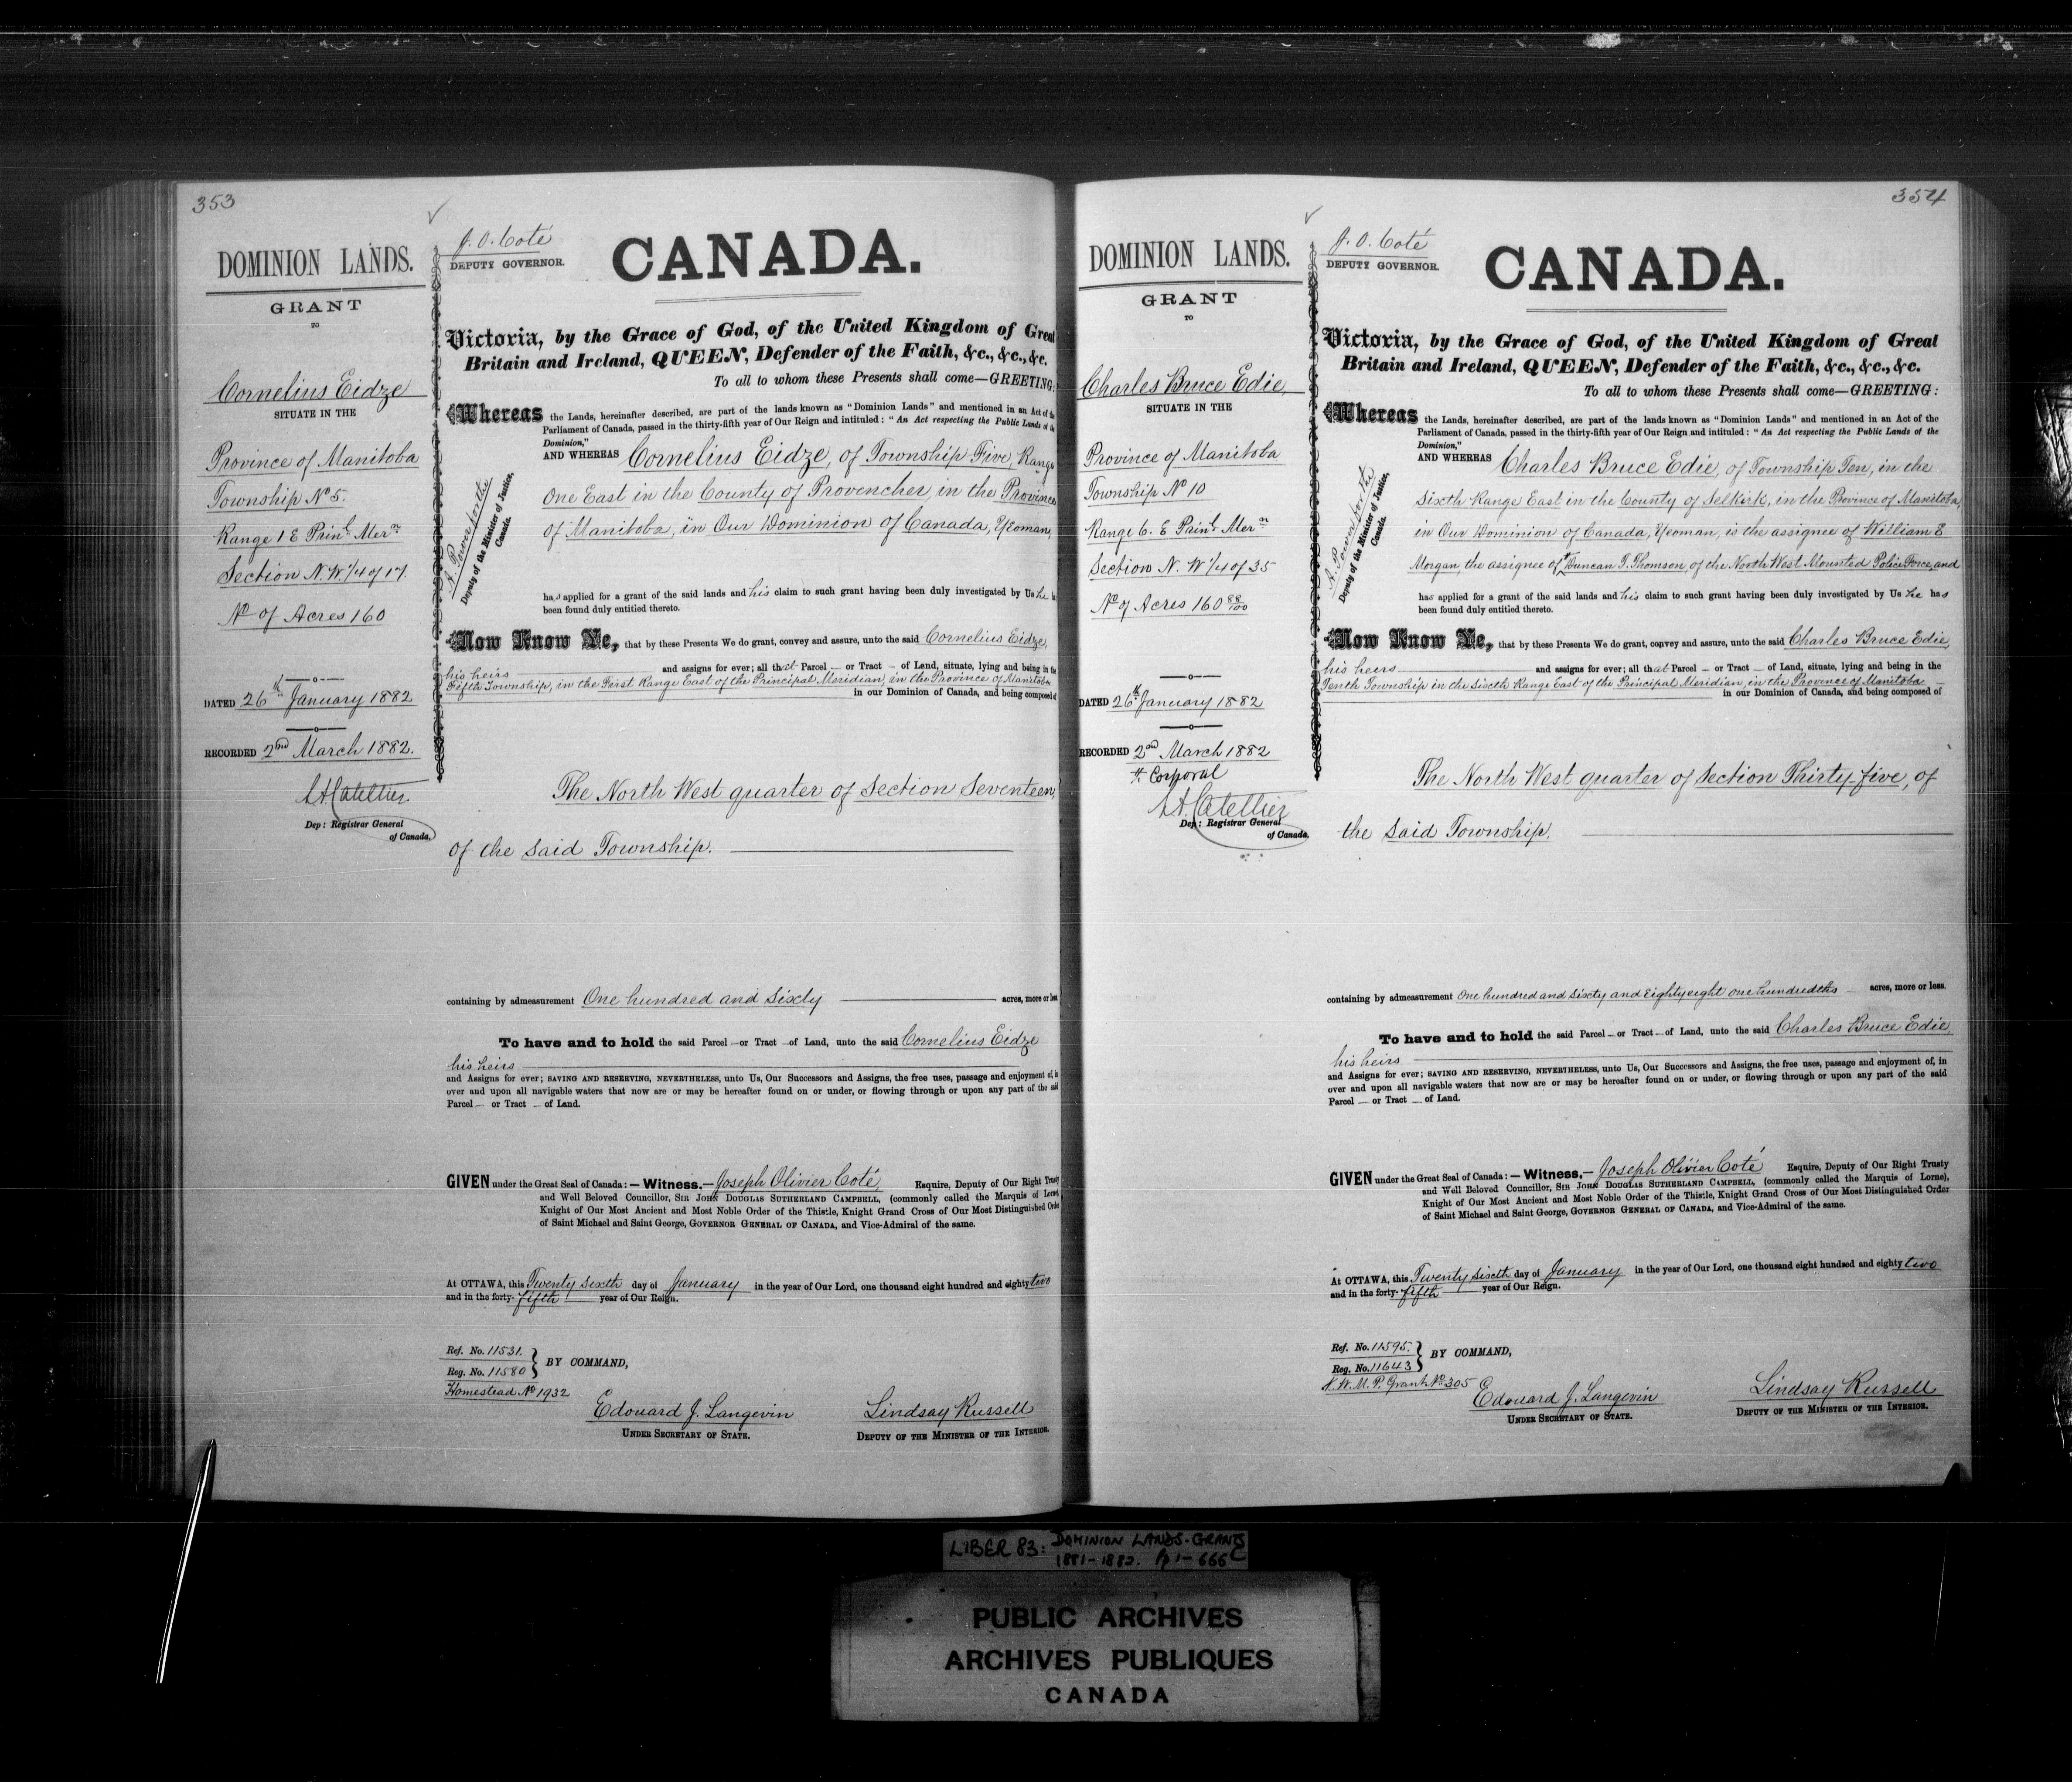 353
DOMINION LANDS.
GRANT
TO
Cornelius Eidze
SITUATE IN THE
Province of Manitoba
Township No 5.
Range 1 E Prinl. Mern
Section N. W. 1/4 of 17.
No of Acres 160
DATED 26th January 1882
RECORDED 2nd March 1882.
Dep: Registrar General
of Canada.
J. O. Coté
DEPUTY GOVERNOR.
CANADA.
Deputy of the Minister of Justice,
Canada.
Victoria, by the Grace of God, of the United Kingdom of Great
Britain and Ireland, QUEEN, Defender of the Faith, &c., &c., &c.
To all to whom these Presents shall come—GREETING:
Whereas the Lands, hereinafter described, are part of the lands known as "Dominion Lands" and mentioned in an Act of the
Parliament of Canada, passed in the thirty-fifth year of Our Reign and intituled: "An Act respecting the Public Lands of the
Dominion,"
AND WHEREAS Cornelius Eidze, of Township Five, Range
One East in the County of Provencher, in the Province
of Manitoba, in Our Dominion of Canada, Yeoman,
has applied for a grant of the said lands and his claim to such grant having been duly investigated by Us he
been found duly entitled thereto.
Now Know Ye, that by these Presents We do grant, convey and assure, unto the said Cornelius Eidze,
his heirs and assigns for ever; all that Parcel — or Tract — of Land, situate, lying and being in the
Fifth Township, in the First Range East of the Principal Meridian, in the Province of Manitoba
in our Dominion of Canada, and being composed of
The North West quarter of Section Seventeen,
of the said Township.
containing by admeasurement One hundred and Sixty acres, more or less
To have and to hold the said Parcel — or Tract — of Land, unto the said Cornelius Eidze
his heirs
and Assigns for ever; SAVING AND RESERVING, NEVERTHELESS, unto Us, Our Successors and Assigns, the free uses, passage and enjoyment of, in
over and upon all navigable waters that now are or may be hereafter found on or under, or flowing through or upon any part of the said
Parcel — or Tract — of Land.
GIVEN under the Great Seal of Canada: — Witness, — Joseph Olivier Coté, Esquire, Deputy of Our Right Trusty
and Well Beloved Councillor, SIR JOHN DOUGLAS SUTHERLAND CAMPBELL, (commonly called the Marquis of Lorne),
Knight of Our Most Ancient and Most Noble Order of the Thistle, Knight Grand Cross of Our Most Distinguished Order
of Saint Michael and Saint George, GOVERNOR GENERAL OF CANADA, and Vice-Admiral of the same.
At OTTAWA, this Twenty sixth day of January in the year of Our Lord, one thousand eight hundred and eighty two
and in the forty-fifth year of Our Reign.
Ref. No. 11531.
Reg. No. 11580
BY COMMAND,
Homestead No 1932
Edouard J. Langevin
UNDER SECRETARY OF STATE.
Lindsay Russell
DEPUTY OF THE MINISTER OF THE INTERIOR.
354
DOMINION LANDS.
GRANT
TO
Charles Bruce Edie,
SITUATE IN THE
Province of Manitoba
Township No 10
Range 6. E Prinl. Mern
Section N. W 1/4 of 35
No of Acres 160 88/100
DATED 26th January 1882
RECORDED 2nd March 1882
# Corporal
Dep: Registrar General
of Canada.
J. O. Coté
DEPUTY GOVERNOR.
CANADA.
Deputy of the Minister of Justice,
Canada.
Victoria, by the Grace of God, of the United Kingdom of Great
Britain and Ireland, QUEEN, Defender of the Faith, &c., &c., &c.
To all to whom these Presents shall come—GREETING:
Whereas the Lands, hereinafter described, are part of the lands known as "Dominion Lands" and mentioned in an Act of the
Parliament of Canada, passed in the thirty-fifth year of Our Reign and intituled: "An Act respecting the Public Lands of the
Dominion,"
AND WHEREAS Charles Bruce Edie, of Township Ten, in the
Sixth Range East in the County of Selkirk, in the Province of Manitoba,
in Our Dominion of Canada, Yeoman, is the assignee of William E
Morgan, the assignee of # Duncan T. Thomson, of the North West Mounted Police Force, and
has applied for a grant of the said lands and his claim to such grant having been duly investigated by Us he has
been found duly entitled thereto.
Now Know Ye, that by these Presents We do grant, convey and assure, unto the said Charles Bruce Edie,
his heirs and assigns for ever; all that Parcel — or Tract — of Land, situate, lying and being in the
Tenth Township in the Sixth Range East of the Principal Meridian, in the Province of Manitoba
in our Dominion of Canada, and being composed of
The North West quarter of Section Thirty-five, of
the said Township.
containing by admeasurement One hundred and Sixty and Eighty eight one hundredths acres, more or less.
To have and to hold the said Parcel — or Tract — of Land, unto the said Charles Bruce Edie,
his heirs
and Assigns for ever; SAVING AND RESERVING, NEVERTHELESS, unto Us, Our Successors and Assigns, the free uses, passage and enjoyment of, in
over and upon all navigable waters that now are or may be hereafter found on or under, or flowing through or upon any part of the said
Parcel — or Tract — of Land.
GIVEN under the Great Seal of Canada: — Witness, — Joseph Olivier Coté Esquire, Deputy of Our Right Trusty
and Well Beloved Councillor, SIR JOHN DOUGLAS SUTHERLAND CAMPBELL, (commonly called the Marquis of Lorne),
Knight of Our Most Ancient and Most Noble Order of the Thistle, Knight Grand Cross of Our Most Distinguished Order
of Saint Michael and Saint George, GOVERNOR GENERAL OF CANADA, and Vice-Admiral of the same.
At OTTAWA, this Twenty sixth day of January in the year of Our Lord, one thousand eight hundred and eighty two
and in the forty-fifth year of Our Reign.
Ref. No. 11595.
Reg. No. 11643
BY COMMAND,
N. W. M. P. Grant No 305
Edouard J. Langevin
UNDER SECRETARY OF STATE.
Lindsay Russell
DEPUTY OF THE MINISTER OF THE INTERIOR.
LIBER 83: DOMINION LANDS-GRANTS
1881-1882. Pp 1-666
PUBLIC ARCHIVES
ARCHIVES PUBLIQUES
CANADA